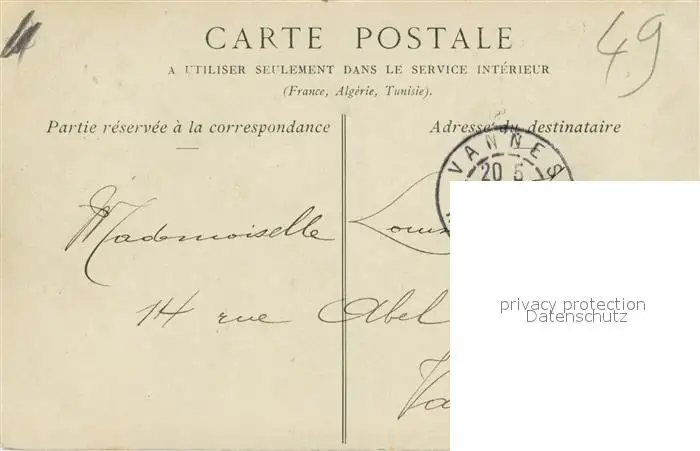 49
CARTE POSTALE
A UTILISER SEULEMENT DANS LE SERVICE INTÉRIEUR
(France, Algérie, Tunisie).
Partie réservée à la correspondance
Adresse du destinataire
VANNES
20 5
Mademoiselle
14 rue Abel
privacy protection
Datenschutz